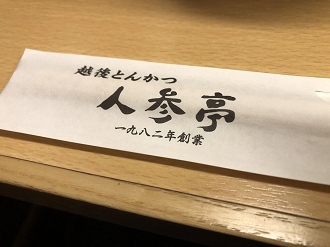 越後とんかつ
人参亭
一九八二年創業